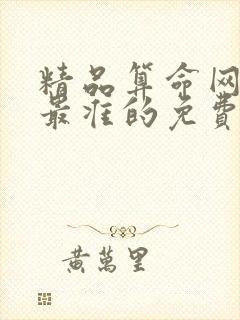 精品算命网
最准的免费
黄萬里